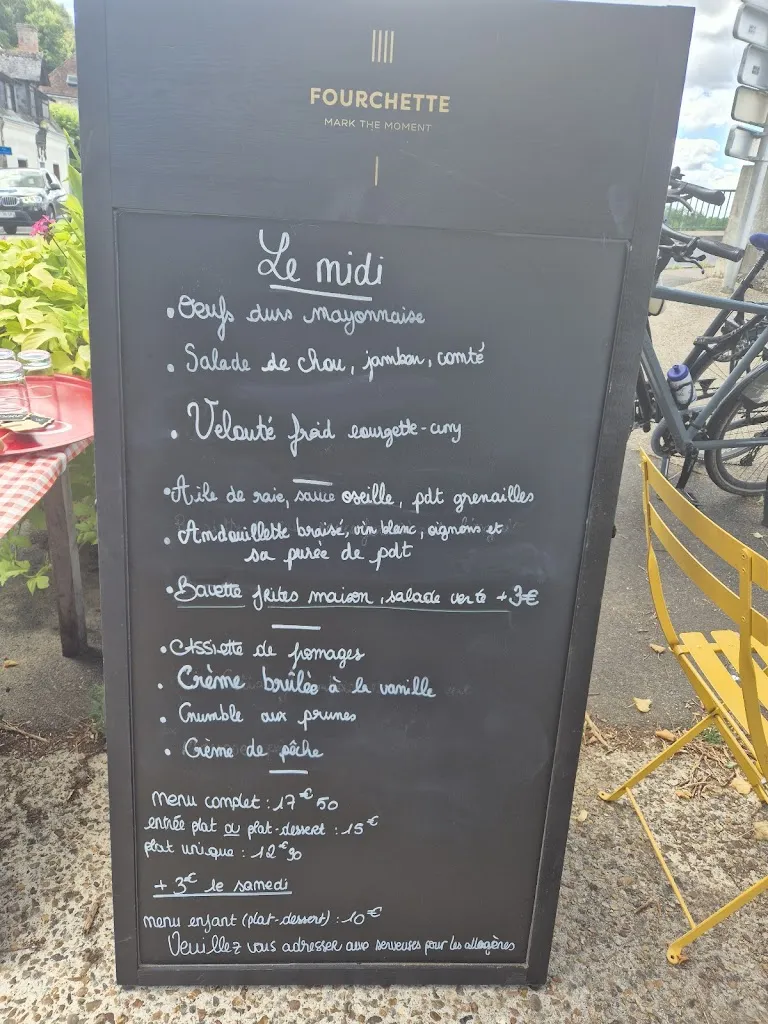 FOURCHETTE
MARK THE MOMENT
Le midi
• Oeufs durs mayonnaise
• Salade de chou, jambon, comté
• Velouté froid courgette-curry
• Aile de raie, sauce oseille, pdt grenailles
• Andouillette braisé, vin blanc, oignons et
sa purée de pdt
• Bavette frites maison, salade verte +3€
• Assiette de fromages
• Crème brûlée à la vanille
• Crumble aux prunes
• Crème de pêche
menu complet : 17€50
entrée plat ou plat-dessert : 15€
plat unique : 12€90
+3€ le samedi
menu enfant (plat-dessert) : 10€
Veuillez vous adresser aux serveuses pour les allergènes